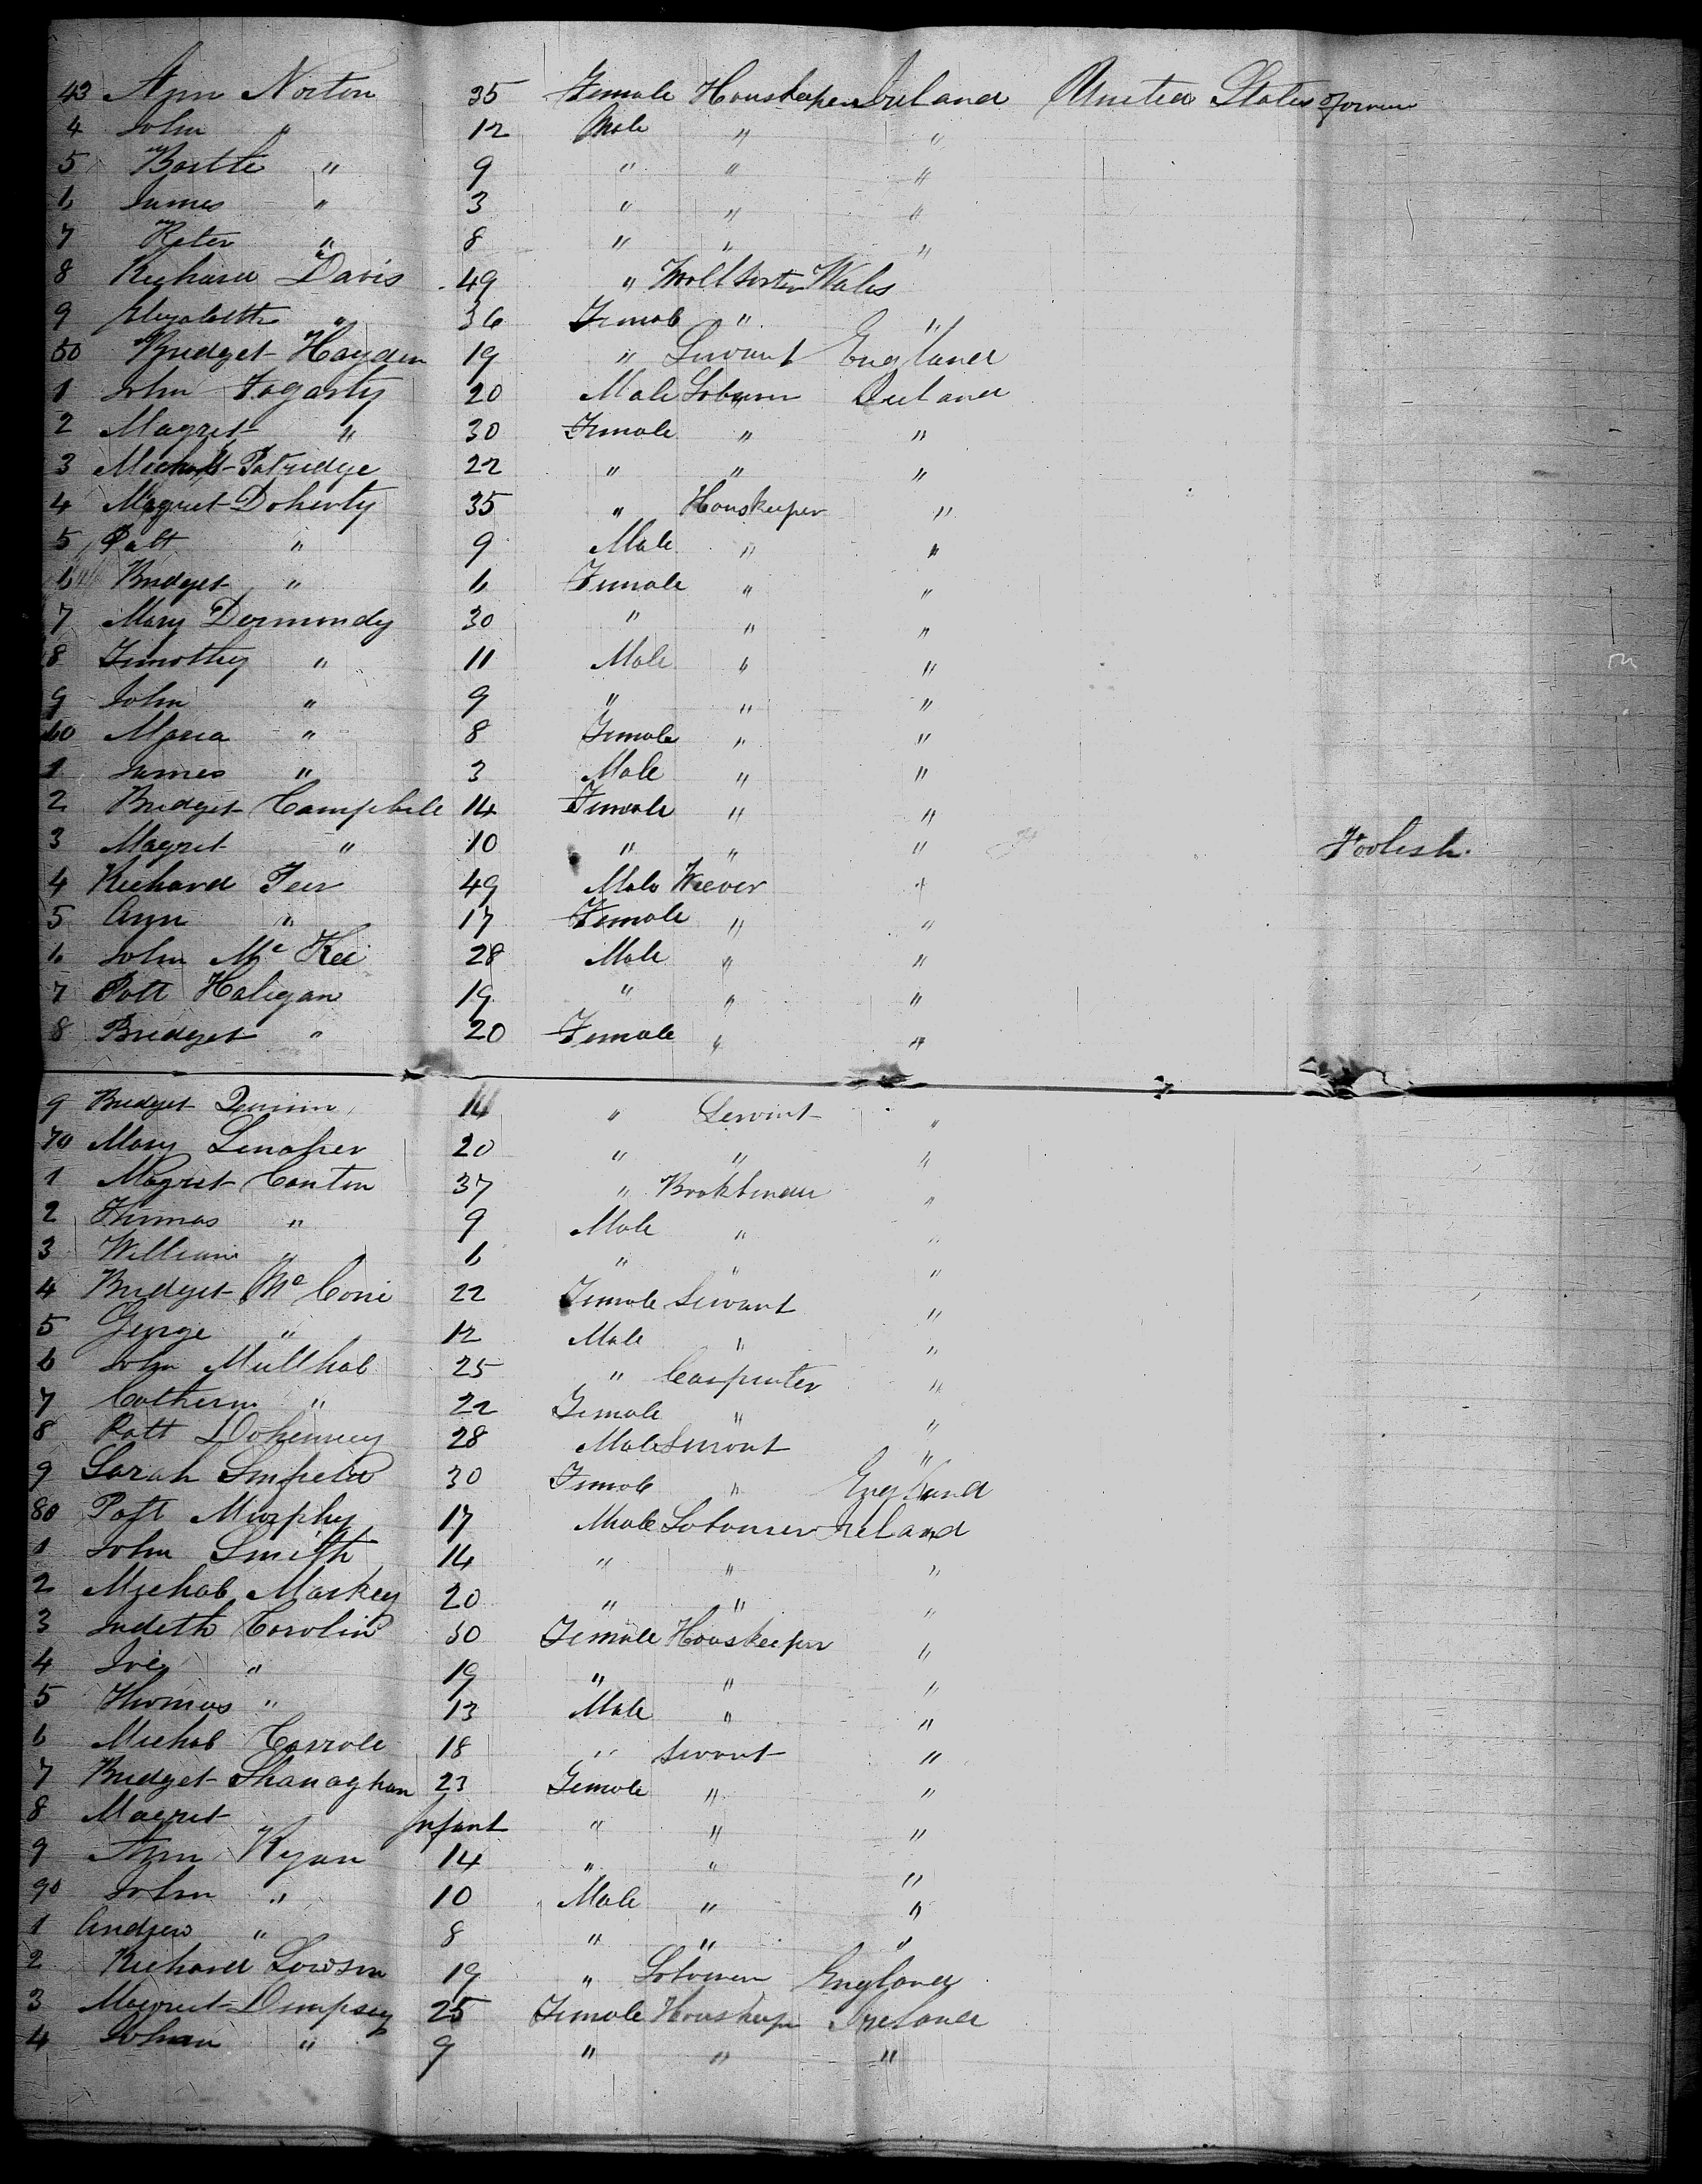 43 Ann Norton 35 Female Houskeeper Ireland United States
4 John " 12 Male " "
5 Bartle " 9 " " "
6 James " 3 " " "
7 Peter " 8 " " "
8 Richard Davis 49 " Woll Sorter Wales
9 Elizabeth " 36 Female " "
50 Bridget Hayden 19 " Servant England
1 John Fogarty 20 Male Ireland
2 Magret " 30 Female " "
3 Patridge 22 " " "
4 Magret Doherty 35 " Houskeeper "
5 Patt " 9 Male " "
6 Bridget " 6 Female " "
7 Mary Dermondy 30 " " "
8 Timothy " 11 Male " "
9 John " 9 " " "
60 Maria " 8 Female " "
1 James " 3 Male " "
2 Bridget Campbell 14 Female " "
3 Magret " 10 " " " Foolish.
4 Richard Feer 49 Male Weever "
5 Ann " 17 Female " "
6 John Mc Kee 28 Male " "
7 Patt Haligan 19 " " "
8 Bridget " 20 Female " "
9 Bridget Quinn 14 " Servint "
70 Mary 20 " " "
1 Magret Canton 37 " Bookbinder "
2 Thomas " 9 Male " "
3 William " 6 " " "
4 Bridget Mc Cone 22 Female Servant "
5 George " 12 Male " "
6 John Mullhab 25 " Carpenter "
7 Cathern " 22 Female " "
8 Patt 28 Male Servant "
9 Sarah 30 Female " England
80 Patt Murphy 17 Male Labourer Ireland
1 John Smith 14 " " "
2 Michal Markey 20 " " "
3 Judeth Carolin 30 Female Houskeeper "
4 " 19 " " "
5 Thomas " 13 Male " "
6 Michal Carrole 18 " Servant "
7 Bridget Shanaghan 23 Female " "
8 Magret Infant " " "
9 Ann Ryan 14 " " "
90 John " 10 Male " "
1 Andrew " 8 " " "
2 Richard Lowson 19 " Labourer England
3 Magret Dempsey 25 Female Houskeep Ireland
4 " 9 " " "